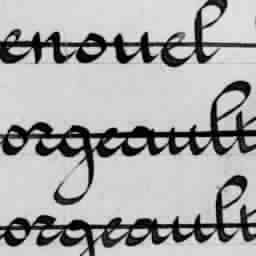 enouel
orgeault
orgeault